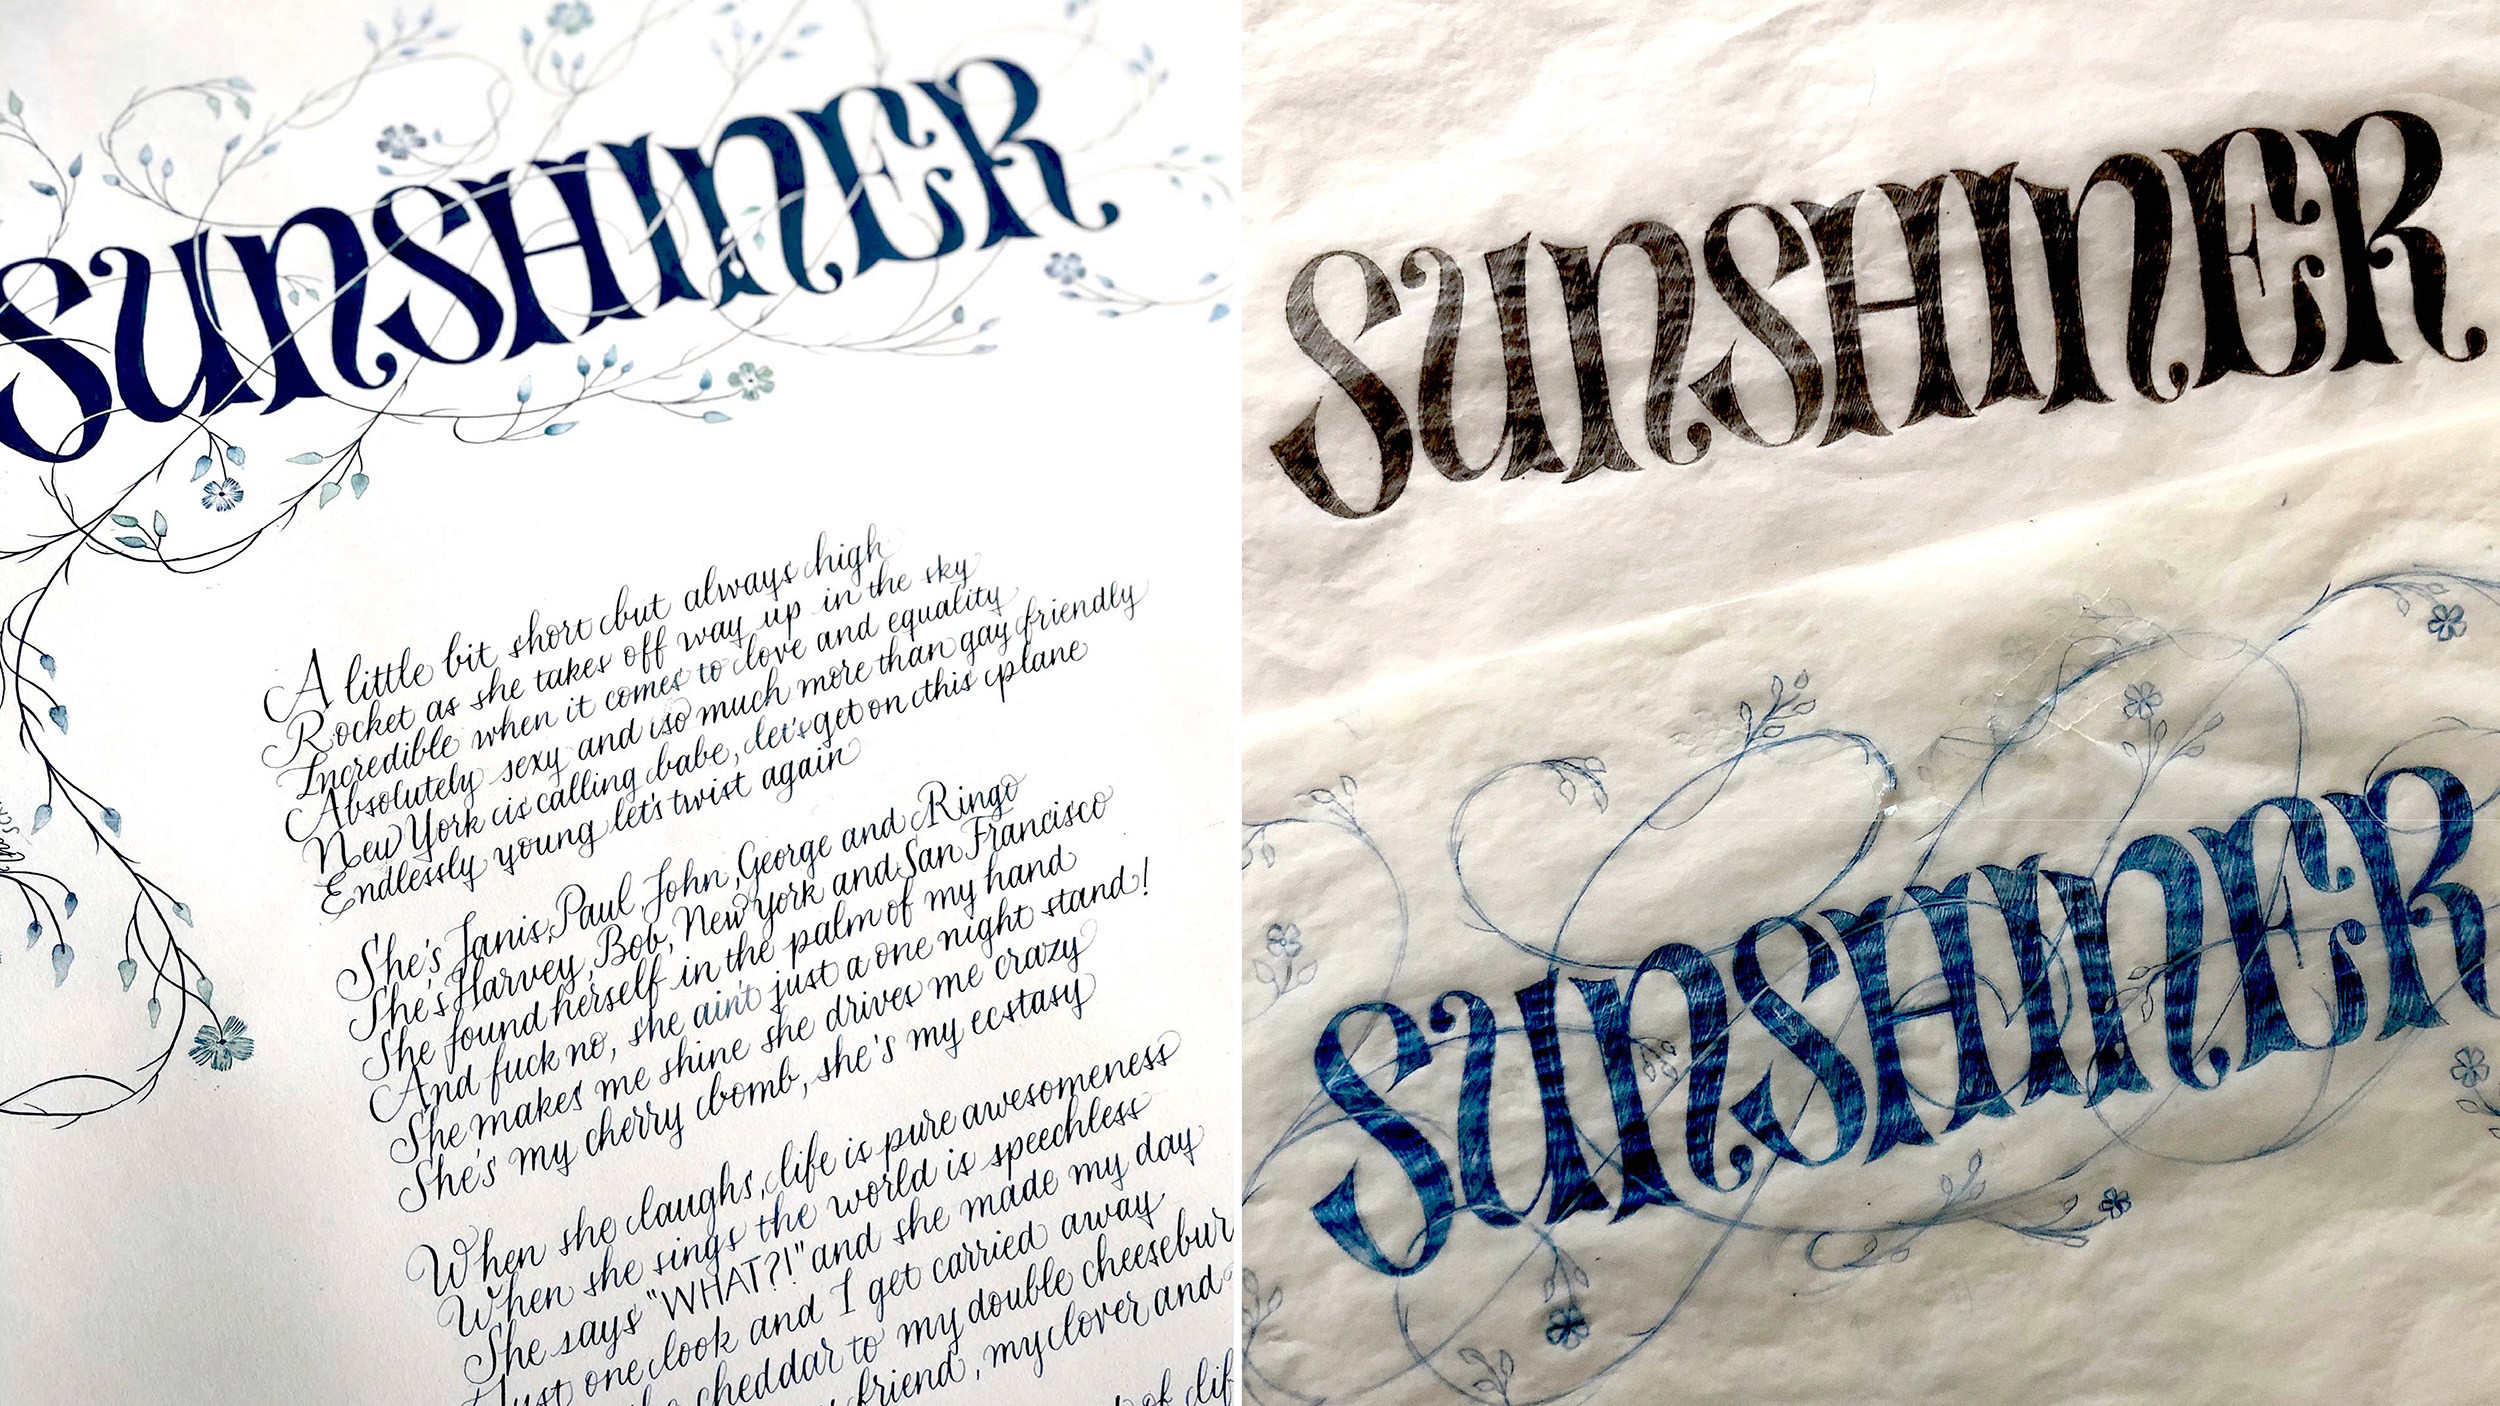 SUNSHINER
A little bit short but always high
Rocket as she takes off way up in the sky
Incredible when it comes to love and equality
Absolutely sexy and so much more than gay friendly
New York is calling babe, let's get on this plane
Endlessly young let's twist again
She's Janis, Paul, John, George and Ringo
She's Harvey, Bob, New York and San Francisco
She found herself in the palm of my hand
And fuck no, she ain't just a one night stand!
She makes me shine she drives me crazy
She's my cherry bomb, she's my ecstasy
When she laughs, life is pure awesomeness
When she sings the world is speechless
She says "WHAT?!" and she made my day
Just one look and I get carried away
cheddar to my double cheesebur
friend, my lover and
of lif
SUNSHINER
SUNSHINER